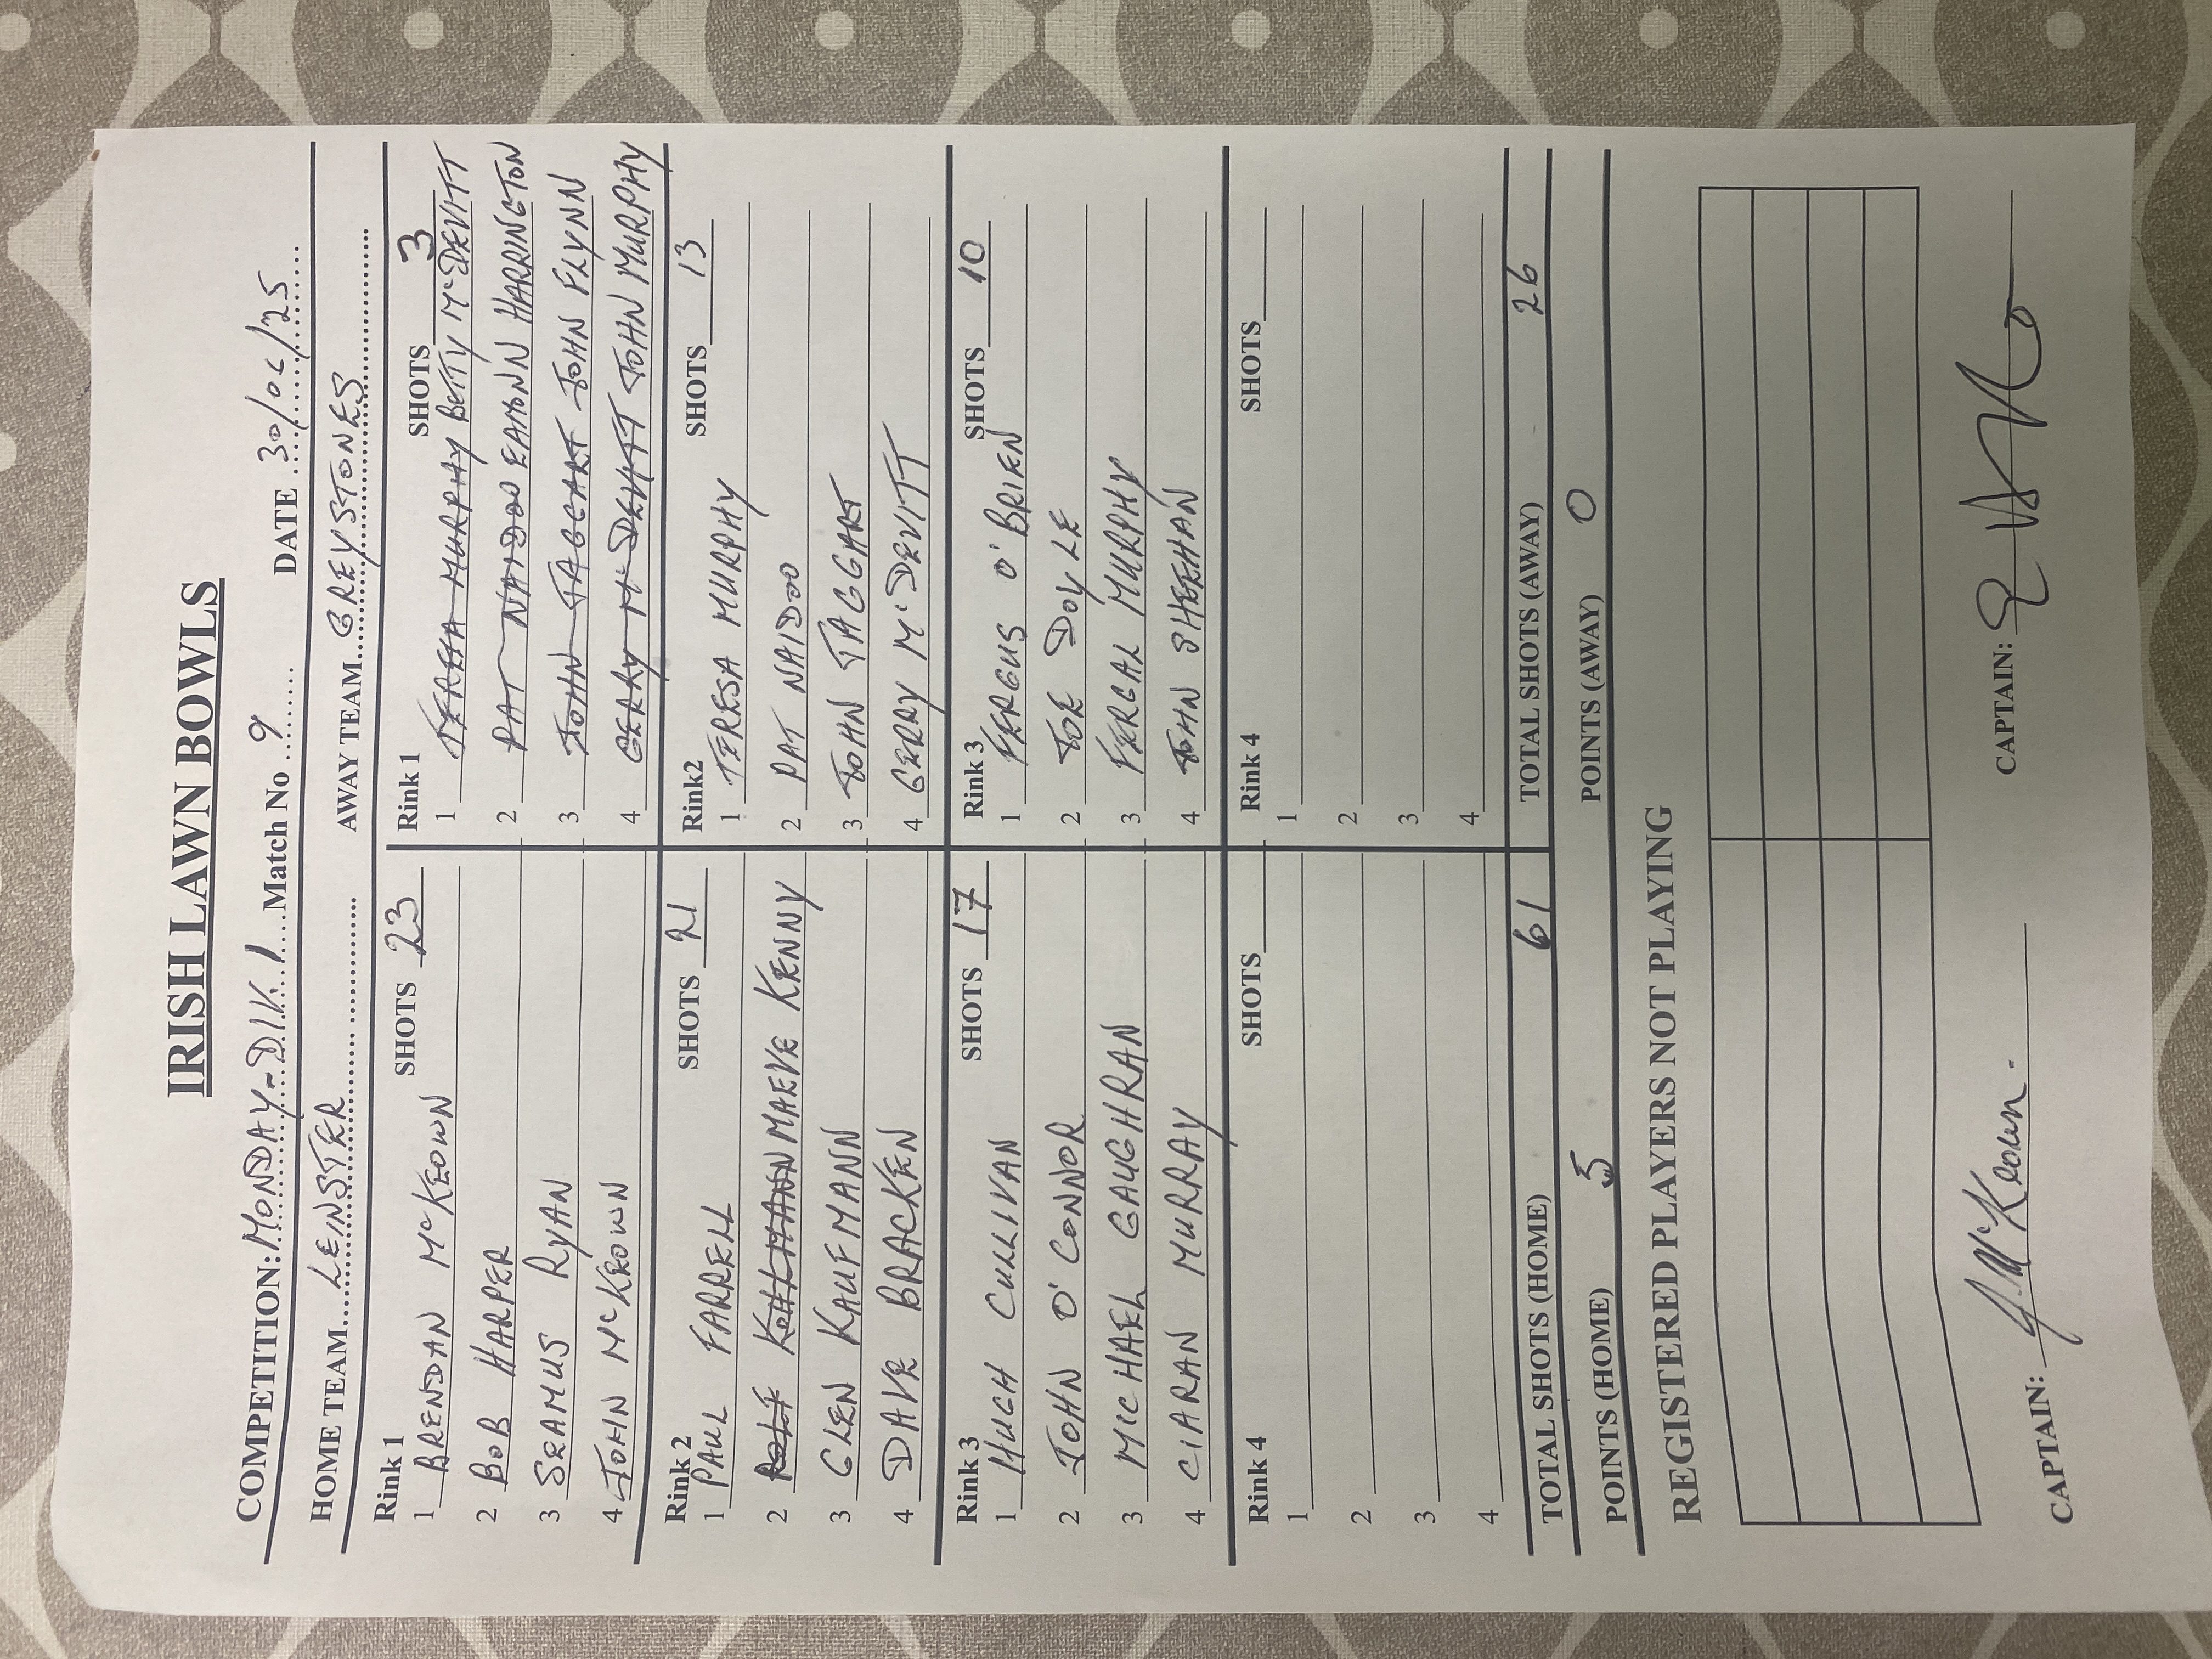 IRISH LAWN BOWLS
COMPETITION: MONDAY - DIV. 1 Match No 9 DATE 30/06/25
HOME TEAM LENSTER AWAY TEAM GREYSTONES
Rink 1 SHOTS 23
1 BRENDAN McKEOWN
2 BOB HARPER
3 SEAMUS RYAN
4 JOHN McKEOWN
Rink 1 SHOTS 3
1 TERESA MURPHY BETTY McDEVITT
2 PAT NAIDOO EAMONN HARRINGTON
3 JOHN TAGGART JOHN FLYNN
4 GERRY McDEVITT JOHN MURPHY
Rink 2 SHOTS 21
1 PAUL FARRELL
2 MAEVE KENNY
3 GLEN KAUFMANN
4 DAVE BRACKEN
Rink2 SHOTS 13
1 TERESA MURPHY
2 PAT NAIDOO
3 JOHN TAGGART
4 GERRY McDEVITT
Rink 3 SHOTS 17
1 HUGH CULLIVAN
2 JOHN O'CONNOR
3 MICHAEL GAUGHRAN
4 CIARAN MURRAY
Rink 3 SHOTS 10
1 FERGUS O'BRIEN
2 JOE DOYLE
3 FERGAL MURPHY
4 JOHN SHEEHAN
Rink 4 SHOTS
1
2
3
4
Rink 4 SHOTS
1
2
3
4
TOTAL SHOTS (HOME) 61 TOTAL SHOTS (AWAY) 26
POINTS (HOME) 5 POINTS (AWAY) 0
REGISTERED PLAYERS NOT PLAYING
CAPTAIN: J. McKeown. CAPTAIN: